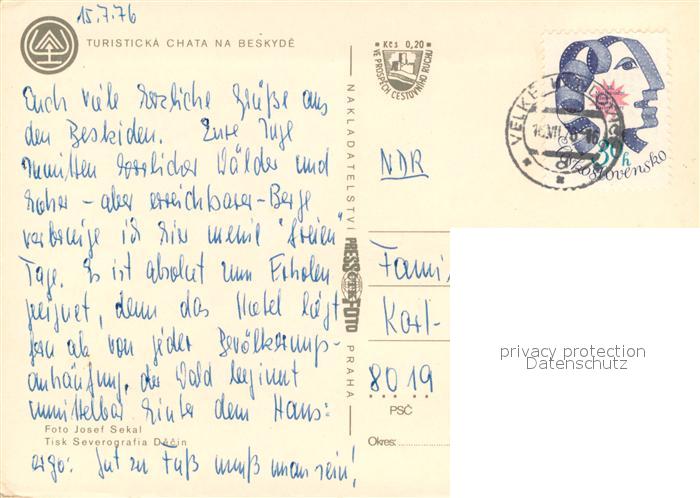 15.7.76
TURISTICKÁ CHATA NA BESKYDĚ
Euch viele herzliche Grüße aus
den Beskiden. Eure Inge
Inmitten herrlicher Wälder und
hoher - aber erreichbarer - Berge
verbringe ich hier meine "freien"
Tage. Es ist absolut zum Erholen
geeignet, denn das Hotel liegt
fern ab von jeder Bevölkerungs-
anhäufung, der Wald beginnt
unmittelbar hinter dem Haus:
Foto Josef Sekal
Tisk Severografia Děčín
ergo: gut zu Fuß muß man sein!
NAKLADATELSTVÍ
PRESSFOTO
PRAHA
Kčs 0,20
VE PROSPĚCH CESTOVNÍHO RUCHU
VELKÉ
30 h
Československo
NDR
Fami
Karl-
8019
PSČ
Okres:
privacy protection
Datenschutz